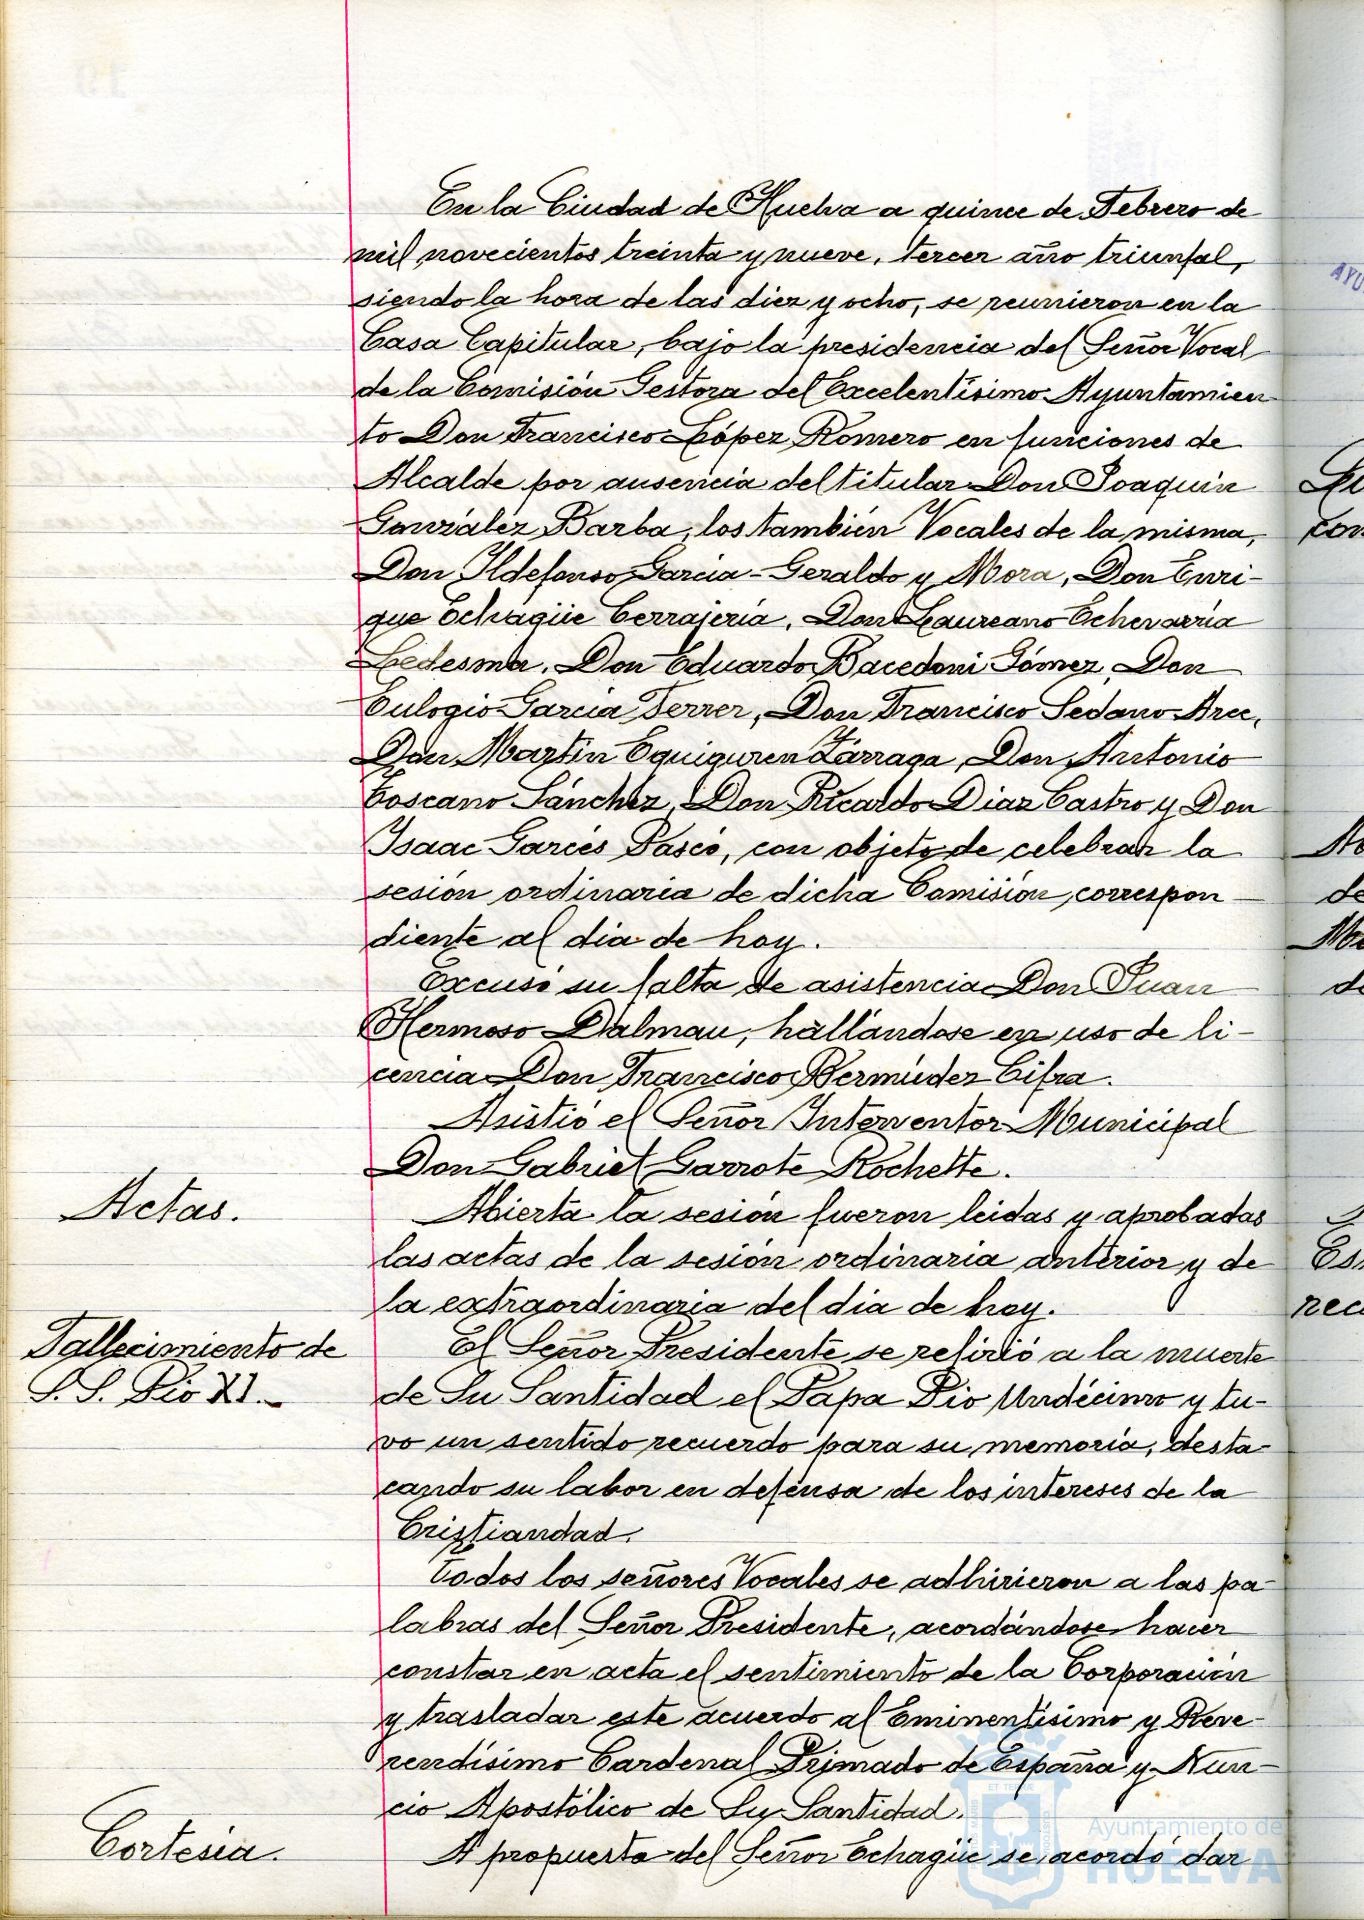 En la Ciudad de Huelva a quince de Febrero de
mil novecientos treinta y nueve, tercer año triunfal,
siendo la hora de las diez y ocho, se reunieron en la
Casa Capitular, bajo la presidencia del Señor Vocal
de la Comisión Gestora del Excelentísimo Ayuntamien-
to Don Francisco López Romero en funciones de
Alcalde por ausencia del titular Don Joaquín
González Barba, los también Vocales de la misma,
Don Ildefonso García-Geraldo y Mora, Don Enri-
que Echagüe Cerrajería, Don Laureano Echevarría
Ledesma, Don Eduardo Bacedoni Gómez, Don
Eulogio García Ferrer, Don Francisco Sedano Arce,
Don Martín Eguiguren Zárraga, Don Antonio
Toscano Sánchez, Don Ricardo Díaz Castro y Don
Isaac Garcés Pascó, con objeto de celebrar la
sesión ordinaria de dicha Comisión, correspon-
diente al dia de hoy.
Excusó su falta de asistencia Don Juan
Hermoso Dalmau, hallándose en uso de li-
cencia Don Francisco Bermúdez Cifra.
Asistió el Señor Interventor Municipal
Don Gabriel Garrote Rochette.
Actas.
Abierta la sesión fueron leidas y aprobadas
las actas de la sesión ordinaria anterior y de
la extraordinaria del dia de hoy.
Fallecimiento de
S. S. Pío XI.
El Señor Presidente se refirió a la muerte
de Su Santidad el Papa Pio Undécimo y tu-
vo un sentido recuerdo para su memoria, desta-
cando su labor en defensa de los intereses de la
Cristiandad.
Todos los señores Vocales se adhirieron a las pa-
labras del Señor Presidente, acordándose hacer
constar en acta el sentimiento de la Corporación
y trasladar este acuerdo al Eminentísimo y Reve-
rendísimo Cardenal Primado de España y Nun-
cio Apostólico de Su Santidad.
Cortesia.
A propuesta del Señor Echagüe se acordó dar
Ayuntamiento de
HUELVA